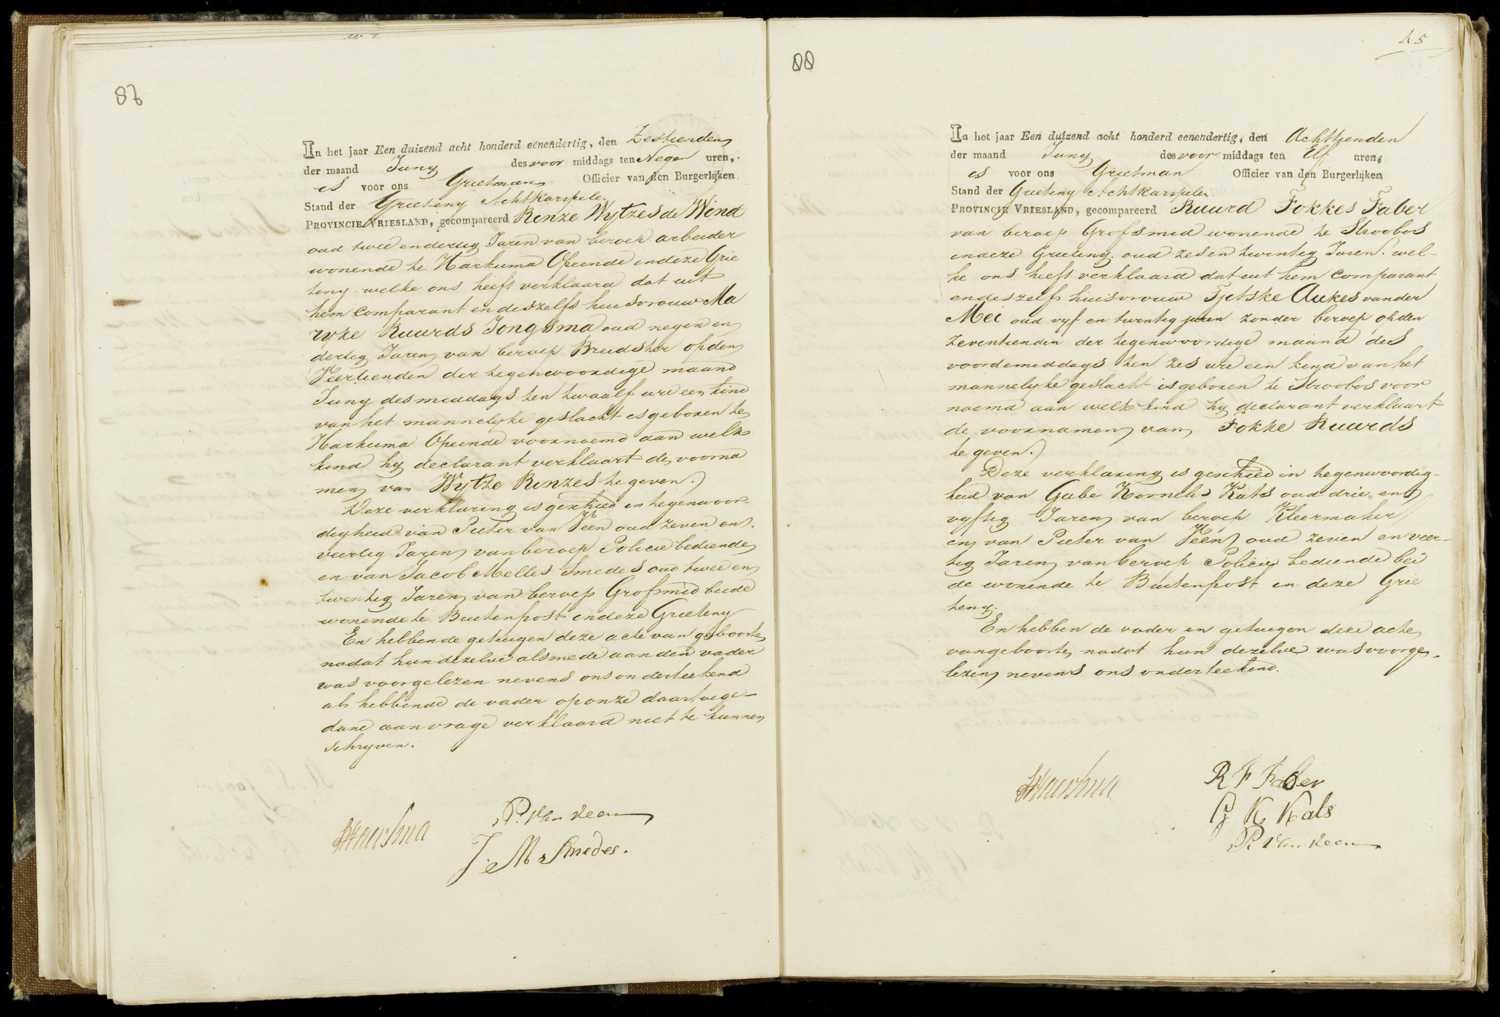 87
In het jaar Een duizend acht honderd eenendertig, den Zestienden
der maand Juny des voor middags ten Negen uren,
is voor ons Grietman Officier van den Burgerlijken
Stand der Grieteny Achtkarspelen
PROVINCIE VRIESLAND, gecompareerd Renze Wytzes de Wind
oud twee endertig Jaren van beroep arbeider
wonende te Harkema Opeinde indeze Grie
teny welke ons heeft verklaard dat uit
hem comparant en deszelfs huisvrouw Ma
ryke Ruurds Jongsma oud negen en
dertig Jaren van beroep Breidster op den
Veertienden der tegenwoordige maand
Juny des middags ten twaalf ure een kind
van het mannelyke geslacht is geboren te
Harkema Opeinde voornoemd aan welk
kind hy declarant verklaart de voorna
men van Wytze Renzes te geven.
Deze verklaring is geschied in tegenwoor
digheid van Pieter van Keen oud zeven en
veertig Jaren van beroep Policie bediende
en van Jacob Melles Smedes oud twee en
twintig Jaren van beroep Grofsmid beide
wonende te Buitenpost in deze Grieteny
En hebben de getuigen deze acte van geboorte
nadat hun dezelve alsmede aan den vader
was voorgelezen nevens ons onderteekend
als hebbende de vader op onze daartoe ge-
dane aanvrage verklaard niet te kunnen
schryven.
P. van Keen
J. M. Smedes.
88
45
In het jaar Een duizend acht honderd eenendertig, den Achttienden
der maand Juny des voor middags ten Elf uren,
is voor ons Grietman Officier van den Burgerlijken
Stand der Grieteny Achtkarspelen
PROVINCIE VRIESLAND, gecompareerd Ruurd Fokkes Faber
van beroep Grofsmid wonende te Stroobos
indeze Grieteny oud zes en twintig Jaren wel-
ke ons heeft verklaard dat uit hem comparant
en deszelfs huisvrouw Tjetske Aukes van der
Mei oud vyf en twintig jaren zonder beroep op den
zeventienden der tegenwoordige maand des
voordemiddags ten zes ure een kind van het
mannelyke geslacht is geboren te Stroobos voor
noemd aan welk kind hy declarant verklaart
de voornamen van Fokke Ruurds
te geven.
Deze verklaring is geschied in tegenwoordig-
heid van Gabe Kornelis Kats oud drie en
vyftig Jaren van beroep Kleermaker
en van Pieter van Keen oud zeven en veer-
tig Jaren van beroep Policie bediende bei
de wonende te Buitenpost in deze Grie
teny.
En hebben de vader en getuigen deze acte
van geboorte nadat hun dezelve was voorge-
lezen nevens ons onderteekend.
R F Faber
G K Kats
P. van Keen